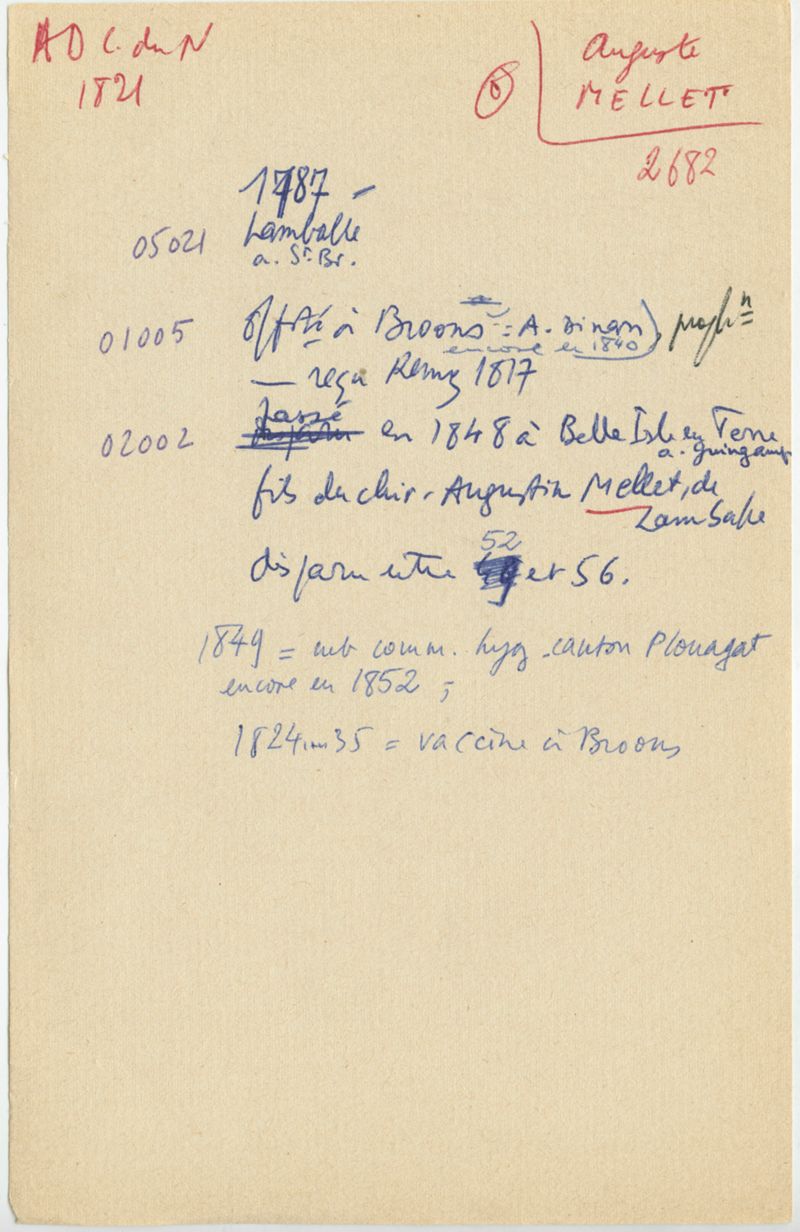 AD C. du N
1821
6
Auguste
MELLET
2682
1787 -
05021 Lamballe
a. St. Br.
01005 off. té à Broons = A. Dinan), prof n
encore en 1840
— reçu Rennes 1817
passé
02002 en 1848 à Belle Isle en Terre
a. Guingamp
fils du chir. Augustin Mellet, de
Lamballe
52
disparu entre et 56.
1849 = mb comm. hyg. canton Plouagat
encore en 1852 ;
1824...35 = vaccine à Broons